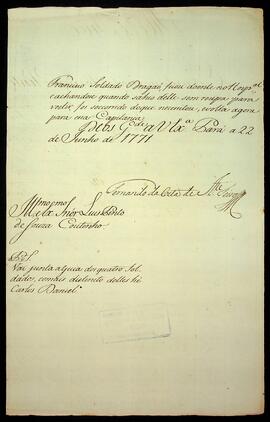 Francisco Soldado Dragaõ, ficou doente no Hospal
e achandose quando sahio delle sem roupa para
vestir foi socorrido do que necesitou, e volta agora
para essa Capitania
Deos Gde a VExa Pará a 22
de Junho de 1771
Fernando da Costa de
Illmo e Exmo
Snor Luis Pinto
de Souza Coutinho
P.S.
Vai junta a guia dos quatro Sol-
dados, o mais distinto delles hé
Carlos Daniel